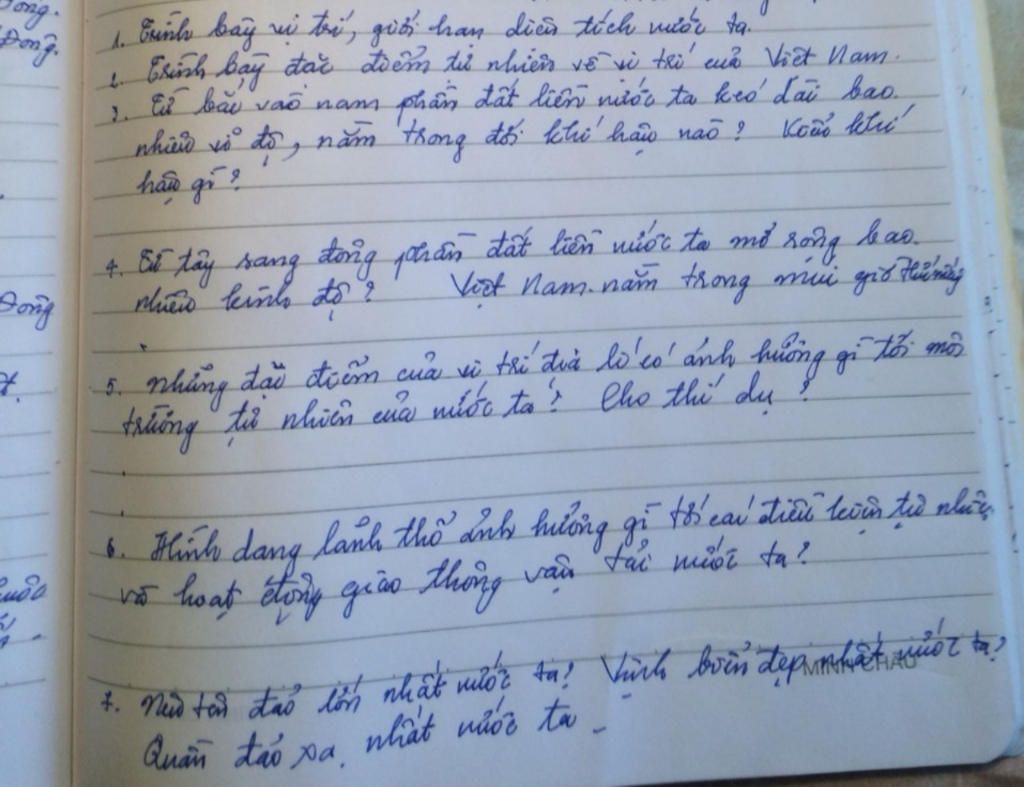 Đông.
Đông.
1. Trình bày vị trí, giới hạn diện tích nước ta.
2. Trình bày đặc điểm tự nhiên về vị trí của Việt Nam.
3. Từ bắc vào nam phần đất liền nước ta kéo dài bao
nhiêu vĩ độ, nằm trong đới khí hậu nào? Kiểu khí
hậu gì?
4. Từ tây sang đông phần đất liền nước ta mở rộng bao
nhiêu kinh độ? Việt Nam nằm trong múi giờ thứ mấy
Đông
5. Những đặc điểm của vị trí địa lí có ảnh hưởng gì tới môi
trường tự nhiên của nước ta? Cho thí dụ?
6. Hình dạng lãnh thổ ảnh hưởng gì tới các điều kiện tự nhiên
và hoạt động giao thông vận tải nước ta?
7. Nêu tên đảo lớn nhất nước ta? Vịnh biển đẹp nhất nước ta?
MINH CHAU
Quần đảo xa nhất nước ta